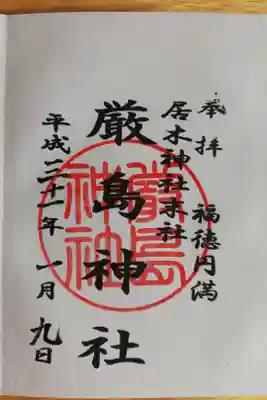 奉拝
福徳円満
居木神社末社
厳島神社
厳島神社
平成三十一年一月九日